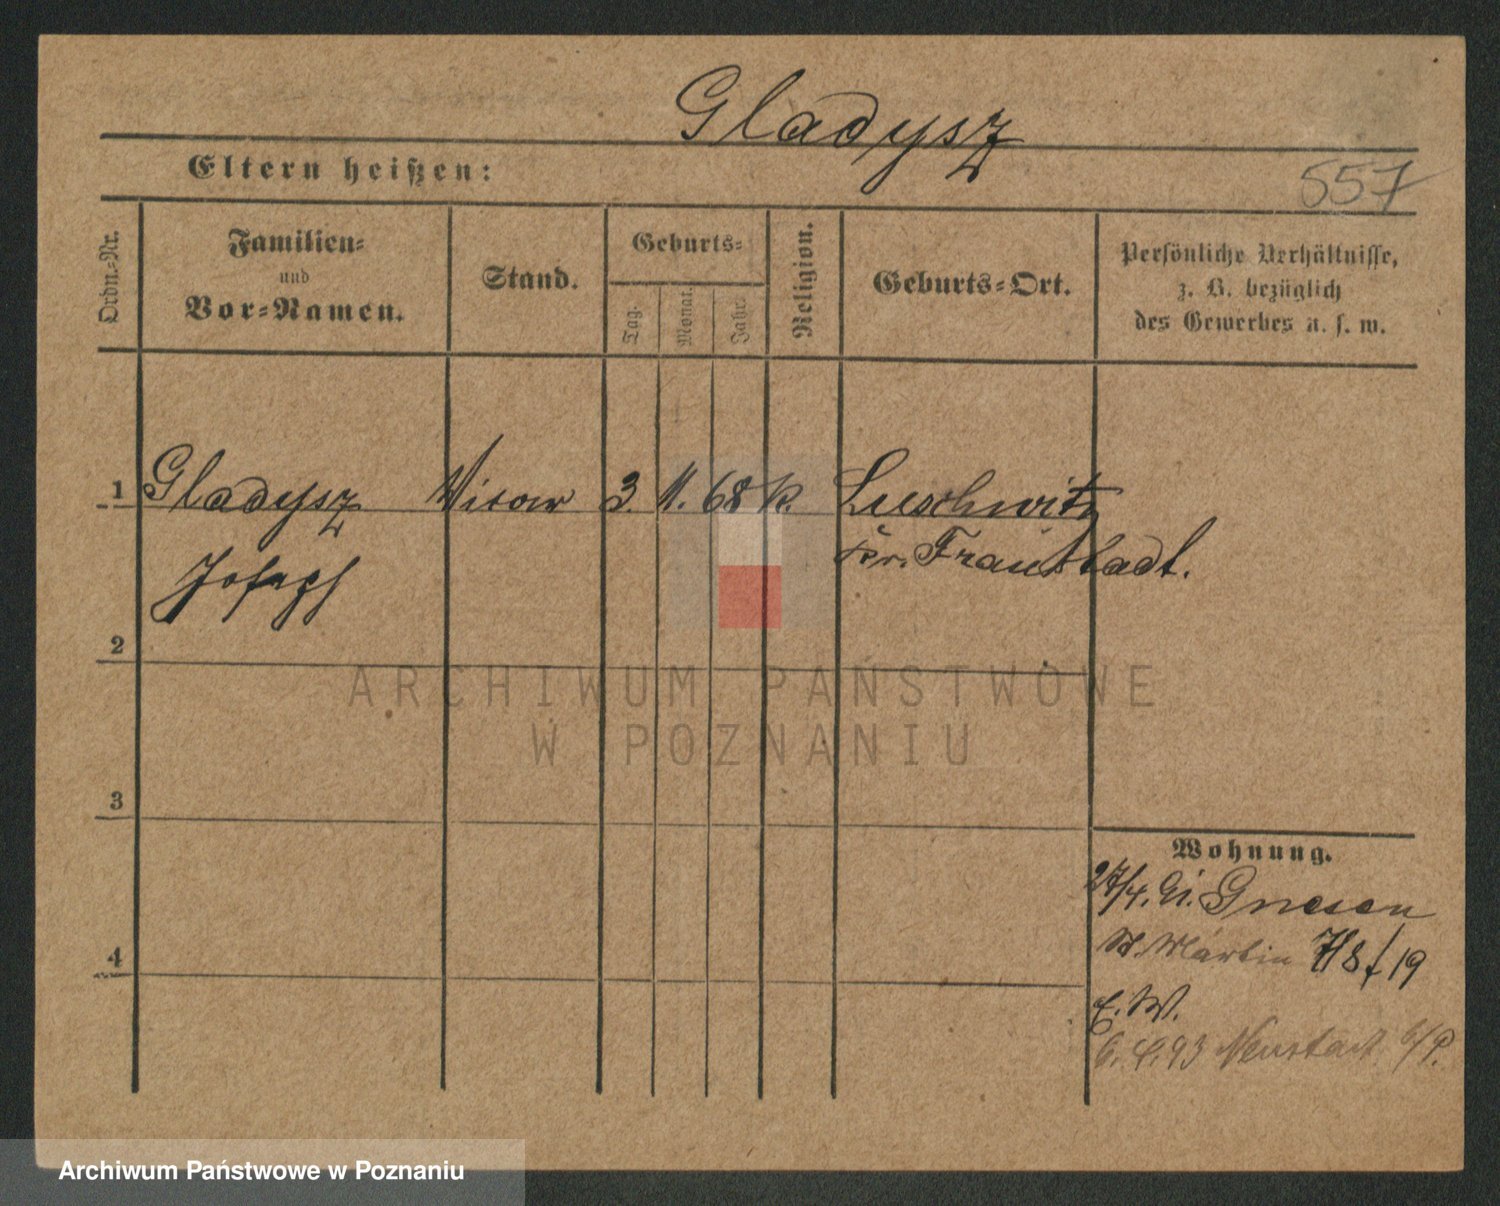 Gladysz
Eltern heißen:
557
Ordn.-Nr.
Familien-
und
Vor-Namen.
Stand.
Geburts-
Tag.
Monat.
Jahr.
Religion.
Geburts-Ort.
Persönliche Verhältnisse,
z. B. bezüglich
des Gewerbes u. s. w.
1 Gladysz Vicar 3. 11. 68 k. Luschwitz
Joseph Kr. Fraustadt.
2
3
4
Wohnung.
27/4. Gnesen
St. Martin 7/8 f 19
E. W.
93 Neustadt b/P.
ARCHIWUM PAŃSTWOWE
W POZNANIU
Archiwum Państwowe w Poznaniu